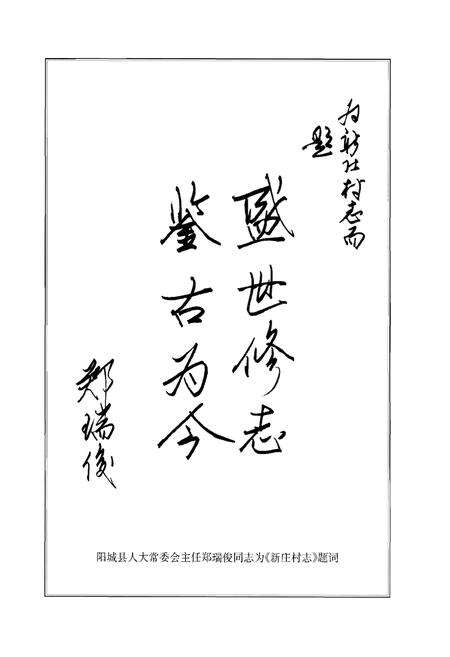 为新庄村志而
题
盛世修志
鉴古为今
郑瑞俊
阳城县人大常委会主任郑瑞俊同志为《新庄村志》题词